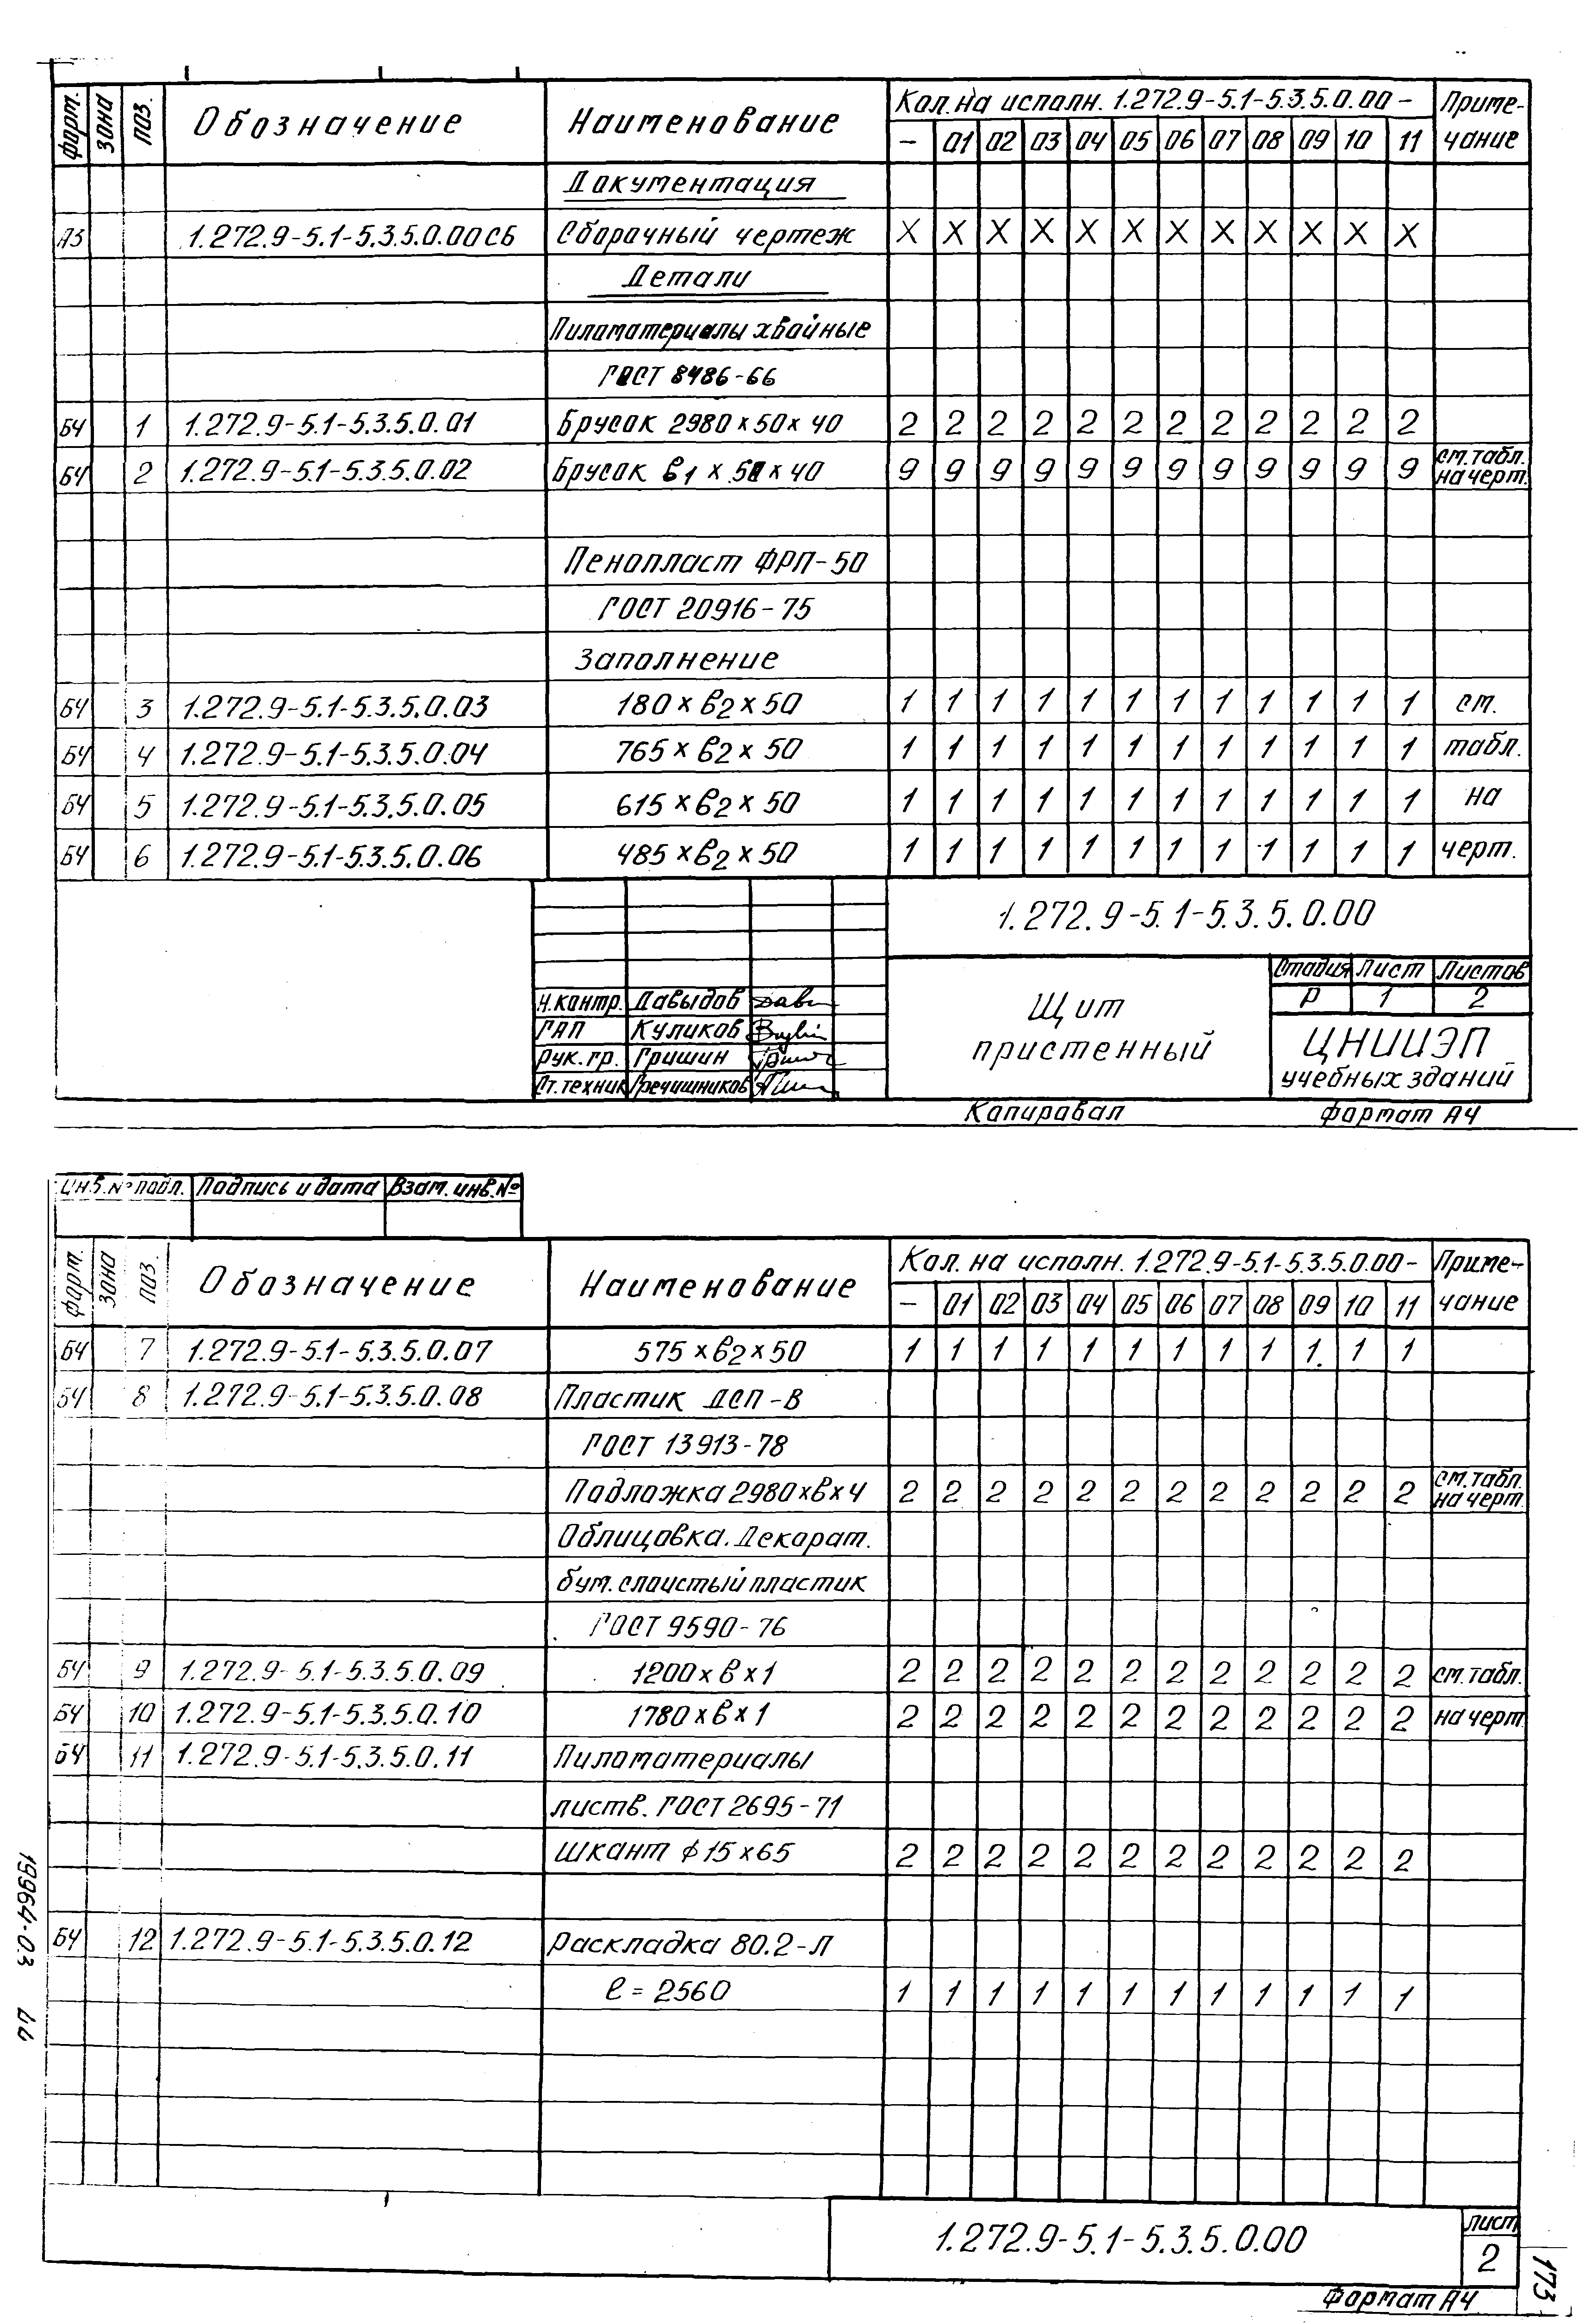 форм. зона поз. Обозначение Наименование Кол. на исполн. 1.272.9-5.1-5.3.5.0.00- Приме-
— 01 02 03 04 05 06 07 08 09 10 11 чание
Документация
А3 1.272.9-5.1-5.3.5.0.00СБ Сборочный чертеж X X X X X X X X X X X X
Детали
Пиломатериалы хвойные
ГОСТ 8486-66
БЧ 1 1.272.9-5.1-5.3.5.0.01 Брусок 2980×50×40 2 2 2 2 2 2 2 2 2 2 2 2
БЧ 2 1.272.9-5.1-5.3.5.0.02 Брусок в1×50×40 9 9 9 9 9 9 9 9 9 9 9 9 см. табл. на черт.
Пенопласт ФРП-50
ГОСТ 20916-75
Заполнение
БЧ 3 1.272.9-5.1-5.3.5.0.03 180×в2×50 1 1 1 1 1 1 1 1 1 1 1 1 см.
БЧ 4 1.272.9-5.1-5.3.5.0.04 765×в2×50 1 1 1 1 1 1 1 1 1 1 1 1 табл.
БЧ 5 1.272.9-5.1-5.3.5.0.05 615×в2×50 1 1 1 1 1 1 1 1 1 1 1 1 на
БЧ 6 1.272.9-5.1-5.3.5.0.06 485×в2×50 1 1 1 1 1 1 1 1 1 1 1 1 черт.
1.272.9-5.1-5.3.5.0.00
Н.контр. Давыдов
ГАП Куликов
Рук. гр. Гришин
Ст. техник Гречишников
Щит
пристенный
Стадия Лист Листов
Р 1 2
ЦНИИЭП
учебных зданий
Копировал Формат А4
Инв. № подл. Подпись и дата Взам. инв. №
форм. зона поз. Обозначение Наименование Кол. на исполн. 1.272.9-5.1-5.3.5.0.00- Приме-
— 01 02 03 04 05 06 07 08 09 10 11 чание
БЧ 7 1.272.9-5.1-5.3.5.0.07 575×в2×50 1 1 1 1 1 1 1 1 1 1 1 1
БЧ 8 1.272.9-5.1-5.3.5.0.08 Пластик ДСП-В
ГОСТ 13913-78
Подложка 2980×в×4 2 2 2 2 2 2 2 2 2 2 2 2 см. табл. на черт
Облицовка. Декорат.
бум. слоистый пластик
ГОСТ 9590-76
БЧ 9 1.272.9-5.1-5.3.5.0.09 1200×в×1 2 2 2 2 2 2 2 2 2 2 2 2 см. табл.
БЧ 10 1.272.9-5.1-5.3.5.0.10 1780×в×1 2 2 2 2 2 2 2 2 2 2 2 2 на черт
БЧ 11 1.272.9-5.1-5.3.5.0.11 Пиломатериалы
листв. ГОСТ 2695-71
Шкант ϕ15×65 2 2 2 2 2 2 2 2 2 2 2 2
БЧ 12 1.272.9-5.1-5.3.5.0.12 Раскладка 80.2-Л
ℓ=2560 1 1 1 1 1 1 1 1 1 1 1 1
19964-03
1.272.9-5.1-5.3.5.0.00
лист
2
173
Формат А4